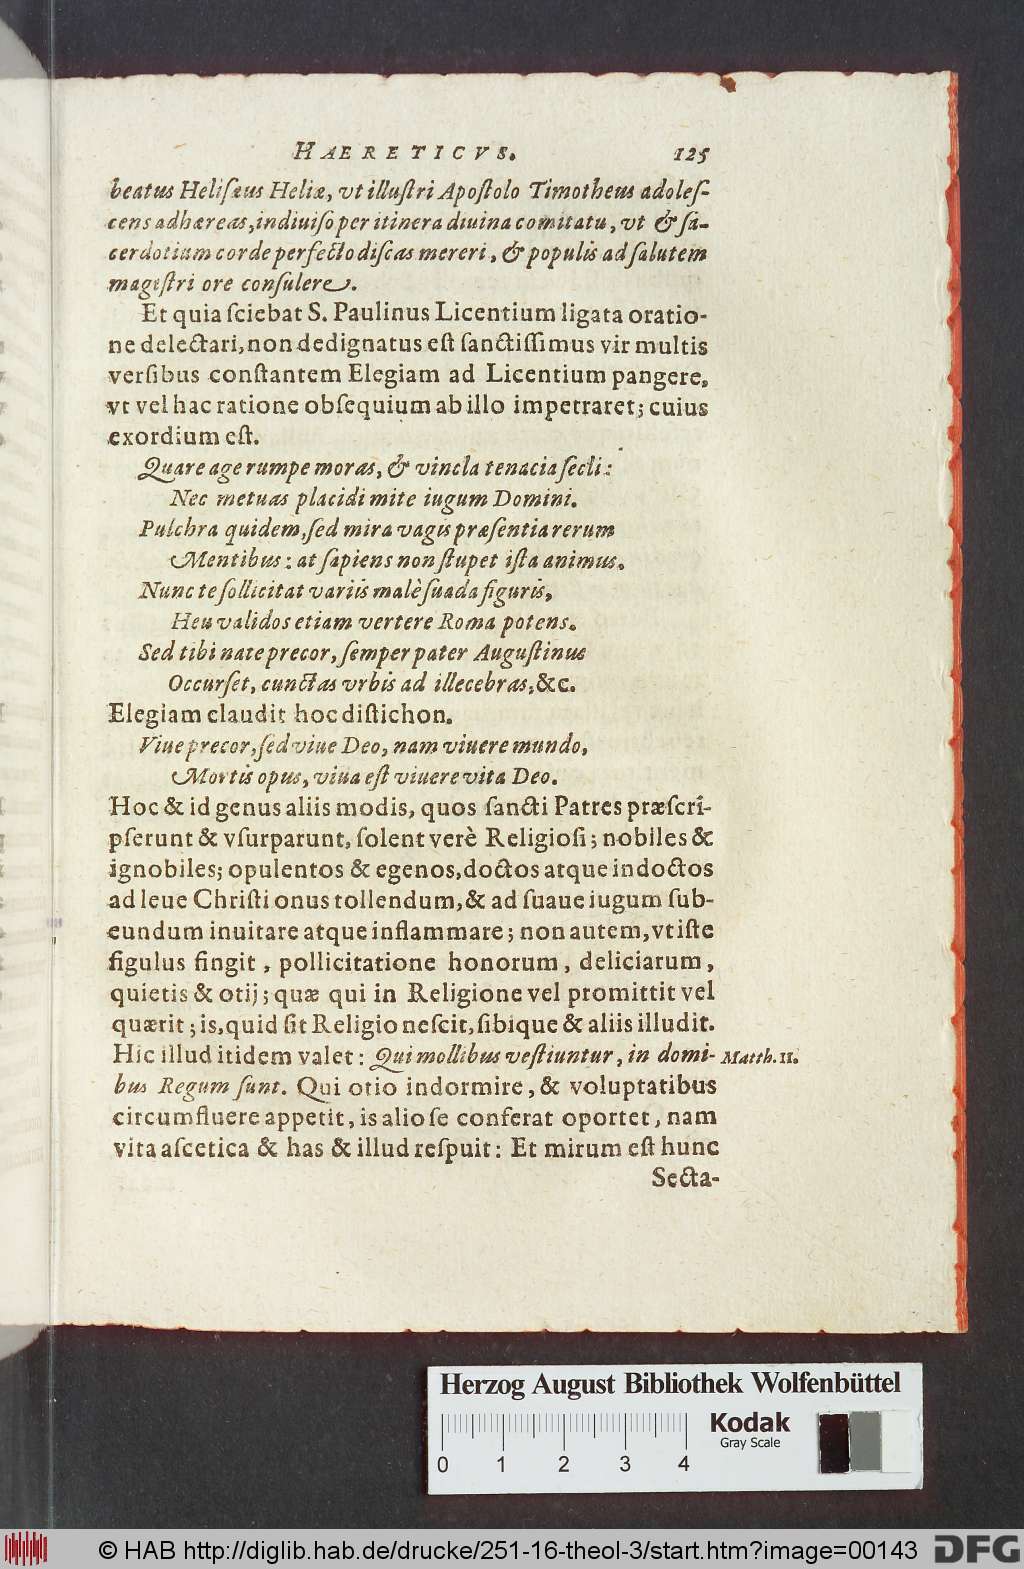 HAERETICVS. 125
beatus Helisæus Heliæ, vt illustri Apostolo Timotheus adoles-
cens adhæreas, indiuiso per itinera diuina comitatu, vt & sa-
cerdotium corde perfecto discas mereri, & populis ad salutem
magistri ore consulere.
Et quia sciebat S. Paulinus Licentium ligata oratio-
ne delectari, non dedignatus est sanctissimus vir multis
versibus constantem Elegiam ad Licentium pangere,
vt vel hac ratione obsequium ab illo impetraret; cuius
exordium est.
Quare age rumpe moras, & vincla tenacia secli:
Nec metuas placidi mite iugum Domini.
Pulchra quidem, sed mira vagis præsentia rerum
Mentibus: at sapiens non stupet ista animus.
Nunc te sollicitat variis malè suada figuris,
Heu validos etiam vertere Roma potens.
Sed tibi nate precor, semper pater Augustinus
Occurset, cunctas vrbis ad illecebras, &c.
Elegiam claudit hoc distichon.
Viue precor, sed viue Deo, nam viuere mundo,
Mortis opus, viua est viuere vita Deo.
Hoc & id genus aliis modis, quos sancti Patres præscri-
pserunt & vsurparunt, solent verè Religiosi; nobiles &
ignobiles; opulentos & egenos, doctos atque indoctos
ad leue Christi onus tollendum, & ad suaue iugum sub-
eundum inuitare atque inflammare; non autem, vt iste
figulus fingit, pollicitatione honorum, deliciarum,
quietis & otij; quæ qui in Religione vel promittit vel
quærit; is, quid sit Religio nescit, sibique & aliis illudit.
Hic illud itidem valet: Qui mollibus vestiuntur, in domi- Matth. 11.
bus Regum sunt. Qui otio indormire, & voluptatibus
circumfluere appetit, is alio se conferat oportet, nam
vita ascetica & has & illud respuit: Et mirum est hunc
Secta-
Herzog August Bibliothek Wolfenbüttel
0 1 2 3 4
Kodak
Gray Scale
© HAB http://diglib.hab.de/drucke/251-16-theol-3/start.htm?image=00143 DFG